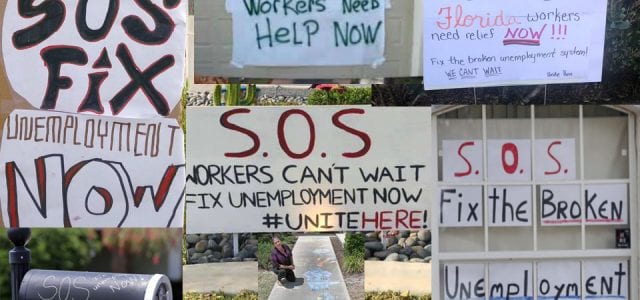 SOS
FiX
UNEMPLOYMENT
NOW
Workers Need
HeLP NOW
Florida workers
need relief NOW!!!
Fix the broken unemployment system!
WE CAN'T WAIT
Unite Here
S.O.S
WORKERS CAN'T WAIT
FIX UNEMPLOYMENT NOW
#UNITEHERE!
S.O.S.
Fix the BRoKEN
UNEMPLoYMENT
S.O.S